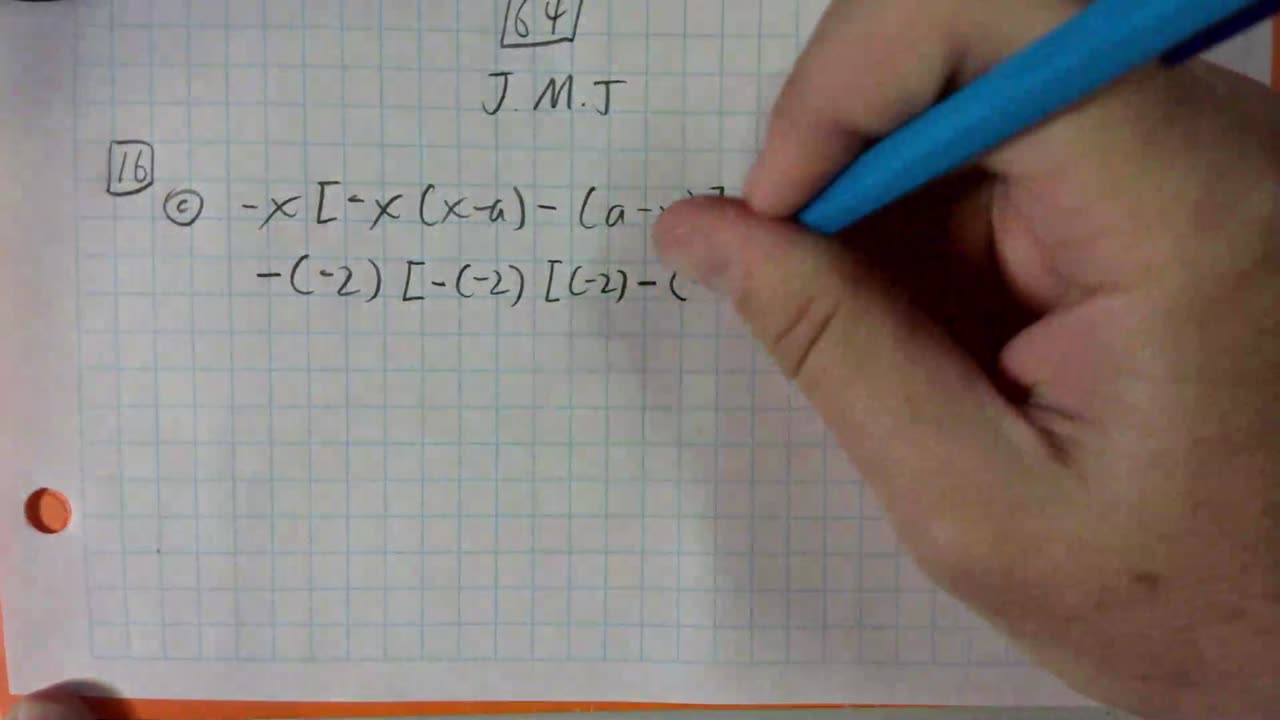 64
J.M.J
16
c -x [-x (x-a) - (a-x)]
-(-2) [-(-2) [(-2)-(